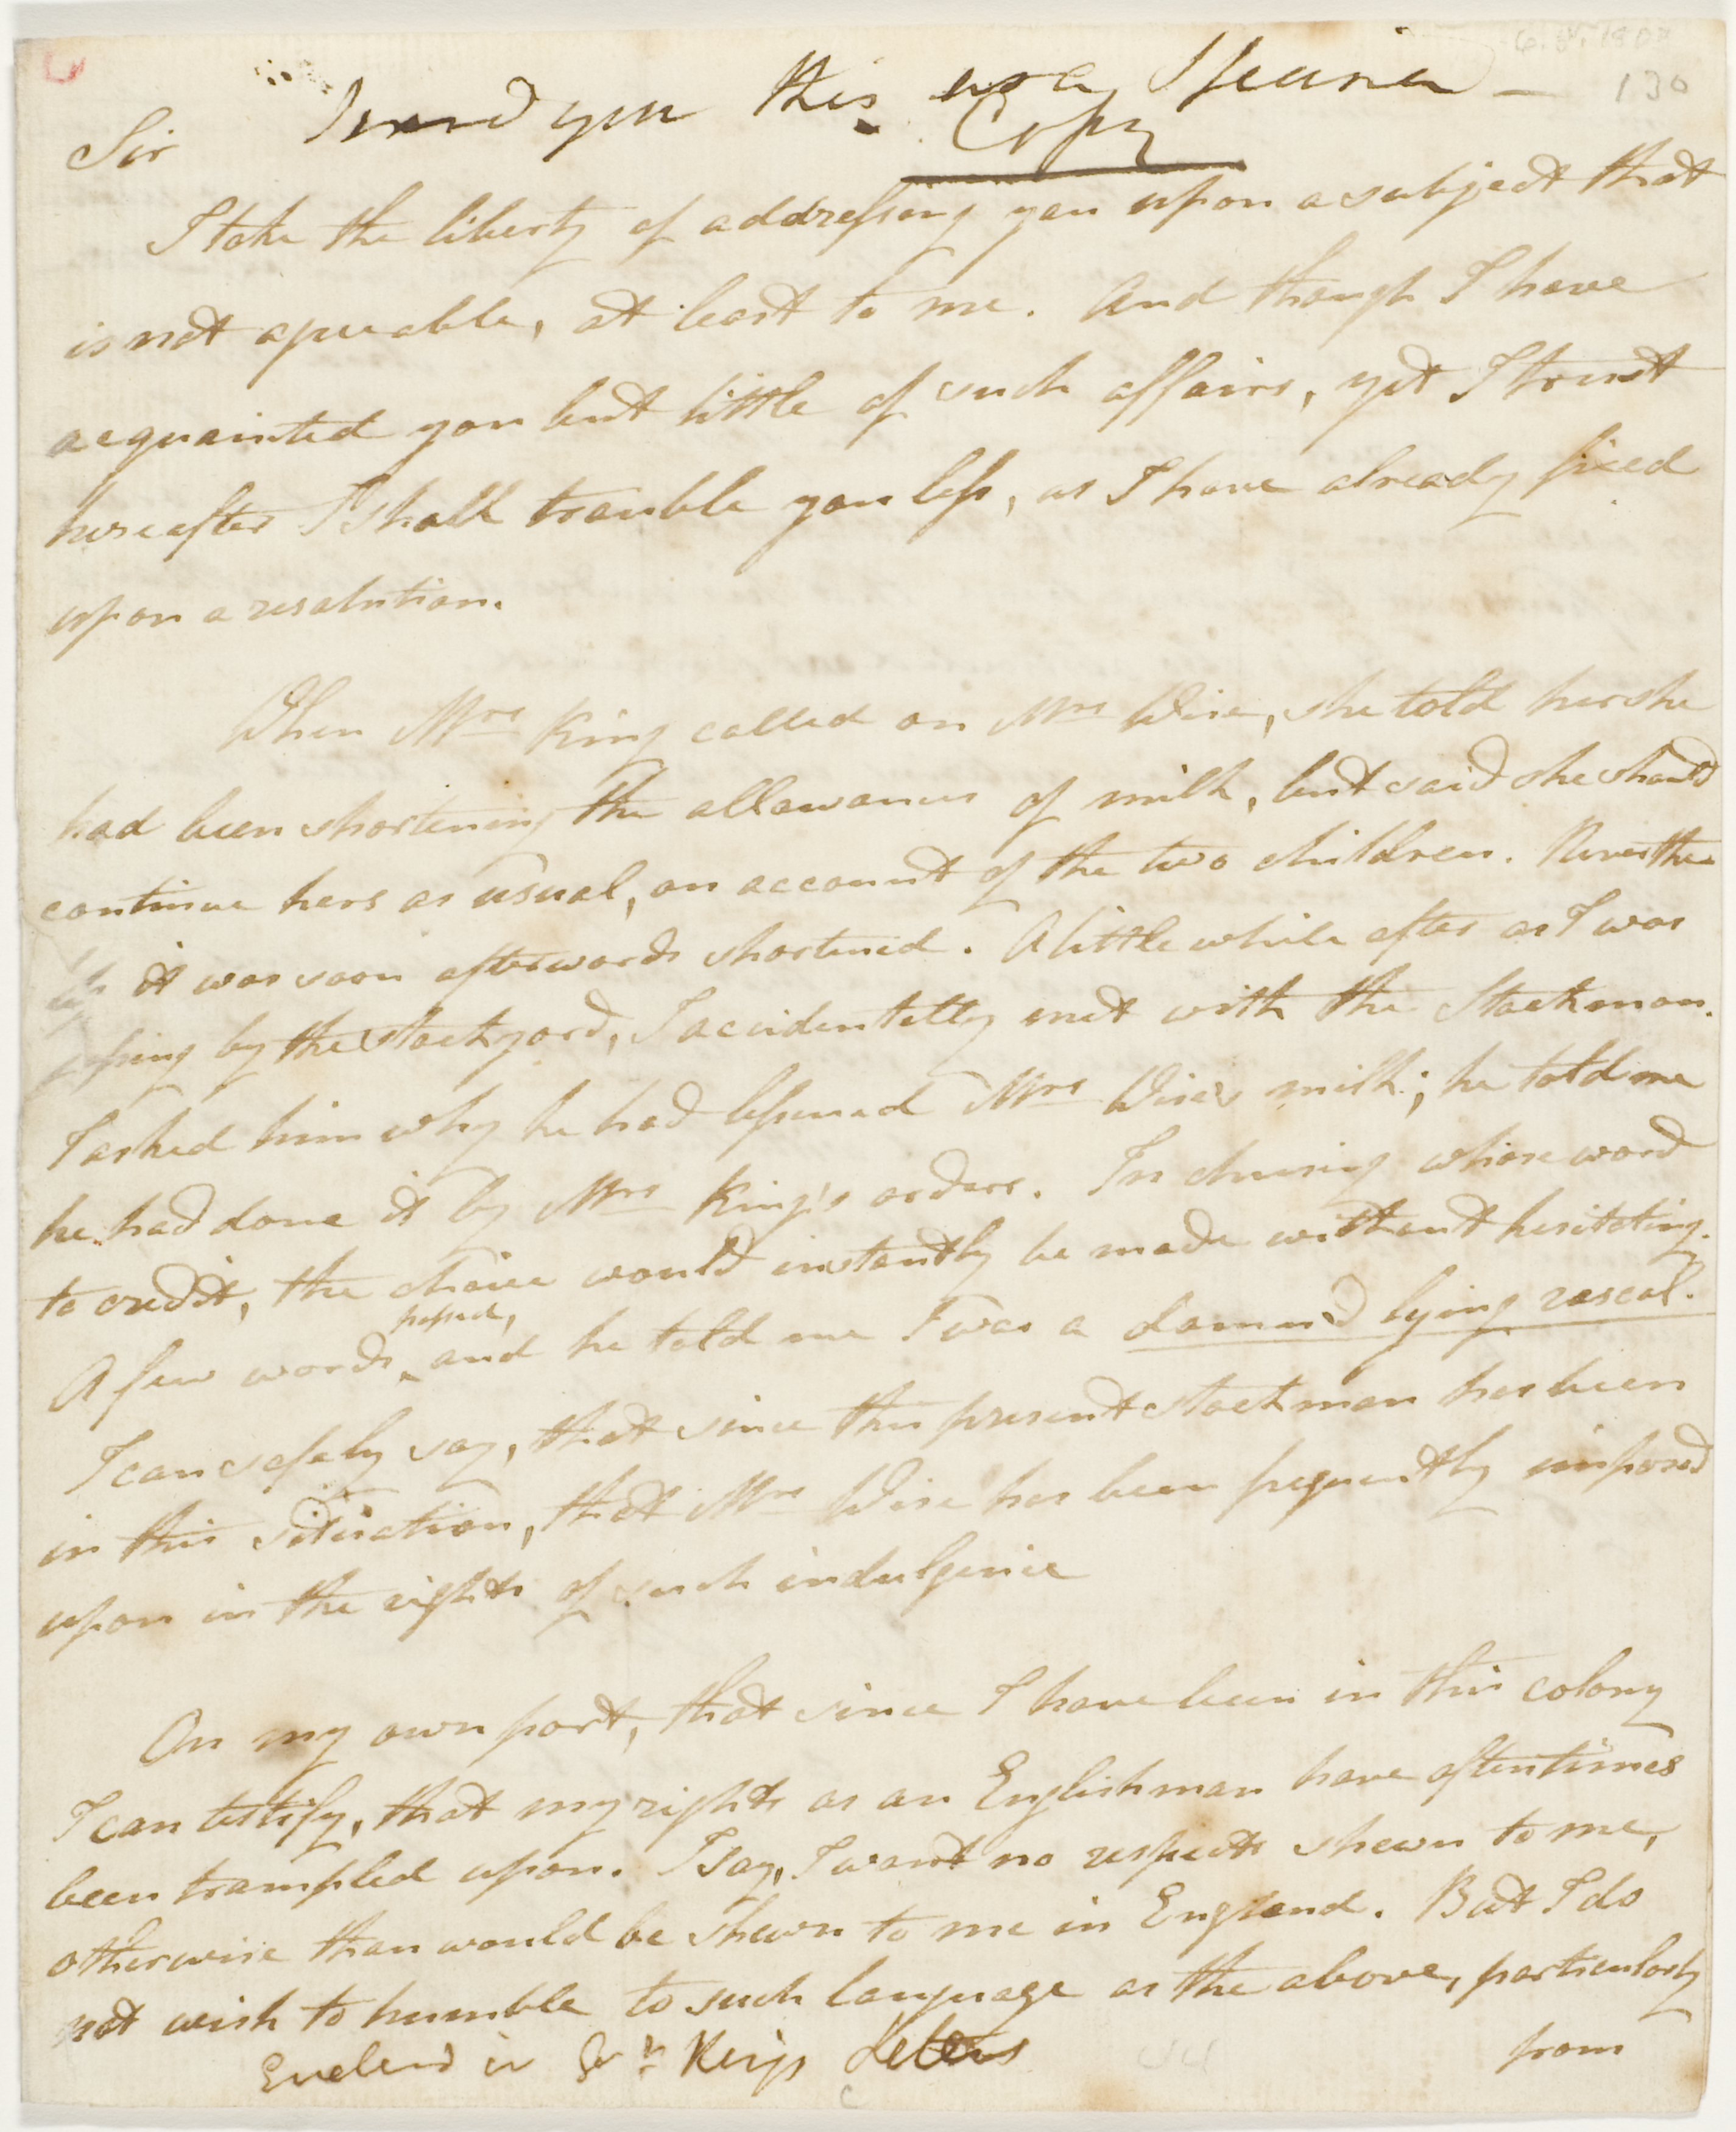 130
I send you this as a Specimen —
Sir
Copy
I take the liberty of addressing you upon a subject that
is not agreeable, at least to me. And though I have
acquainted you but little of such affairs, yet I trust
hereafter I shall trouble you less, as I have already fixed
upon a resolution.
When Mrs King called on Mrs Wise, she told her she
had been shortening the allowances of milk, but said she should
continue hers as usual, on account of the two children. Neverthe=
less it was soon afterwards shortened. A little while after as I was
passing by the stockyard, I accidentally met with the Stockman.
I asked him why he had lessened Mrs Wise's milk; he told me
he had done it by Mrs King's orders. In chusing whose word
to credit, the choice would instantly be made without hesitating.
A few words passed, and he told me I was a damn'd lying rascal.
I can safely say, that since this present stockman has been
in this situation, that Mrs Wise has been frequently imposed
upon in the rights of such indulgence
On my own part, that since I have been in this colony
I can testify, that my rights as an Englishman have oftentimes
been trampled upon. I say, I want no respects shewn to me,
otherwise than would be shewn to me in England. But I do
not wish to humble to such language as the above, particularly
from
Enclosed in Govr Kings Letters